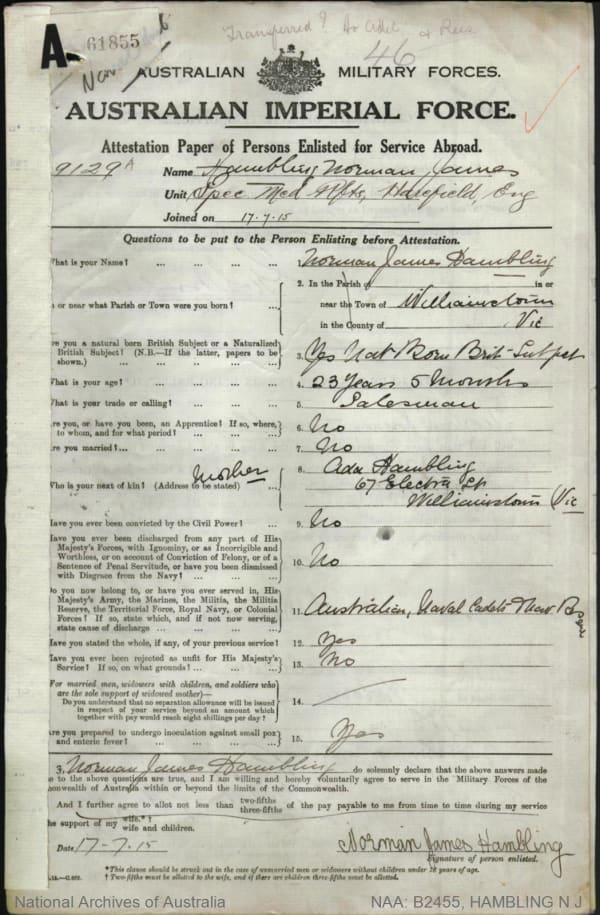 Transferred?
A 61855
46
AUSTRALIAN MILITARY FORCES.
AUSTRALIAN IMPERIAL FORCE.
Attestation Paper of Persons Enlisted for Service Abroad.
9129A Name Hambling Norman James
Unit Spec Med Rfts, Harefield, Eng
Joined on 17-7-15
Questions to be put to the Person Enlisting before Attestation.
hat is your Name? ... ... ... ... 1. Norman James Hambling
2. In the Parish of in or
n or near what Parish or Town were you born? ... near the Town of Williamstown
in the County of Vic
re you a natural born British Subject or a Naturalized
British Subject? (N.B.—If the latter, papers to be 3. Yes Nat Born Brit-Subject
shown.) ... ... ... ... ...
hat is your age? ... ... ... ... 4. 23 Years 5 Months
hat is your trade or calling? ... ... ... 5. Salesman
re you, or have you been, an Apprentice? If so, where, 6. No
to whom, and for what period? ... ... ...
re you married? ... ... ... ... 7. No
Mother 8. Ada Hambling
Who is your next of kin? (Address to be stated) ... 67 Electra St
Williamstown Vic
ave you ever been convicted by the Civil Power? ... 9. No
ave you ever been discharged from any part of His
Majesty's Forces, with Ignominy, or as Incorrigible and
Worthless, or on account of Conviction of Felony, or of a 10. No
Sentence of Penal Servitude, or have you been dismissed
with Disgrace from the Navy? ... ... ...
o you now belong to, or have you ever served in, His
Majesty's Army, the Marines, the Militia, the Militia
Reserve, the Territorial Force, Royal Navy, or Colonial 11. Australian, Naval Cadets
Forces? If so, state which, and if not now serving,
state cause of discharge ... ... ...
ave you stated the whole, if any, of your previous service? 12. Yes
ave you ever been rejected as unfit for His Majesty's 13. No
Service? If so, on what grounds? ... ...
(For married men, widowers with children, and soldiers who
are the sole support of widowed mother)—
Do you understand that no separation allowance will be issued 14.
in respect of your service beyond an amount which
together with pay would reach eight shillings per day?
re you prepared to undergo inoculation against small pox 15. Yes
and enteric fever? ... ... ... ...
3, Norman James Hambling do solemnly declare that the above answers made
e to the above questions are true, and I am willing and hereby voluntarily agree to serve in the Military Forces of the
onwealth of Australia within or beyond the limits of the Commonwealth.
And I further agree to allot not less than two-fifths three-fifths of the pay payable to me from time to time during my service
he support of my wife.*† wife and children.
Date 17-7-15 Norman James Hambling
Signature of person enlisted.
*This clause should be struck out in the case of unmarried men or widowers without children under 18 years of age.
† Two-fifths must be allotted to the wife, and if there are children three-fifths must be allotted.
National Archives of Australia NAA: B2455, HAMBLING N J